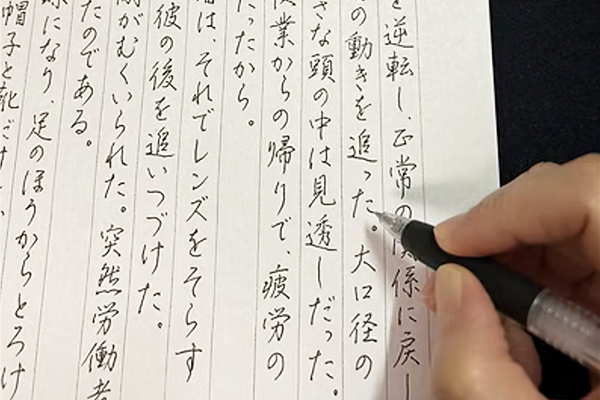 を逆転し、正常の関係に戻し
の動きを追った。大口径の
さな頭の中は見透しだった。
業からの帰りで、疲労の
たったから。
は、それでレンズをそらす
彼の後を追いつづけた。
がむくいられた。突然労働者
たのである。
になり、足のほうからとろけ
帽子と靴だけ